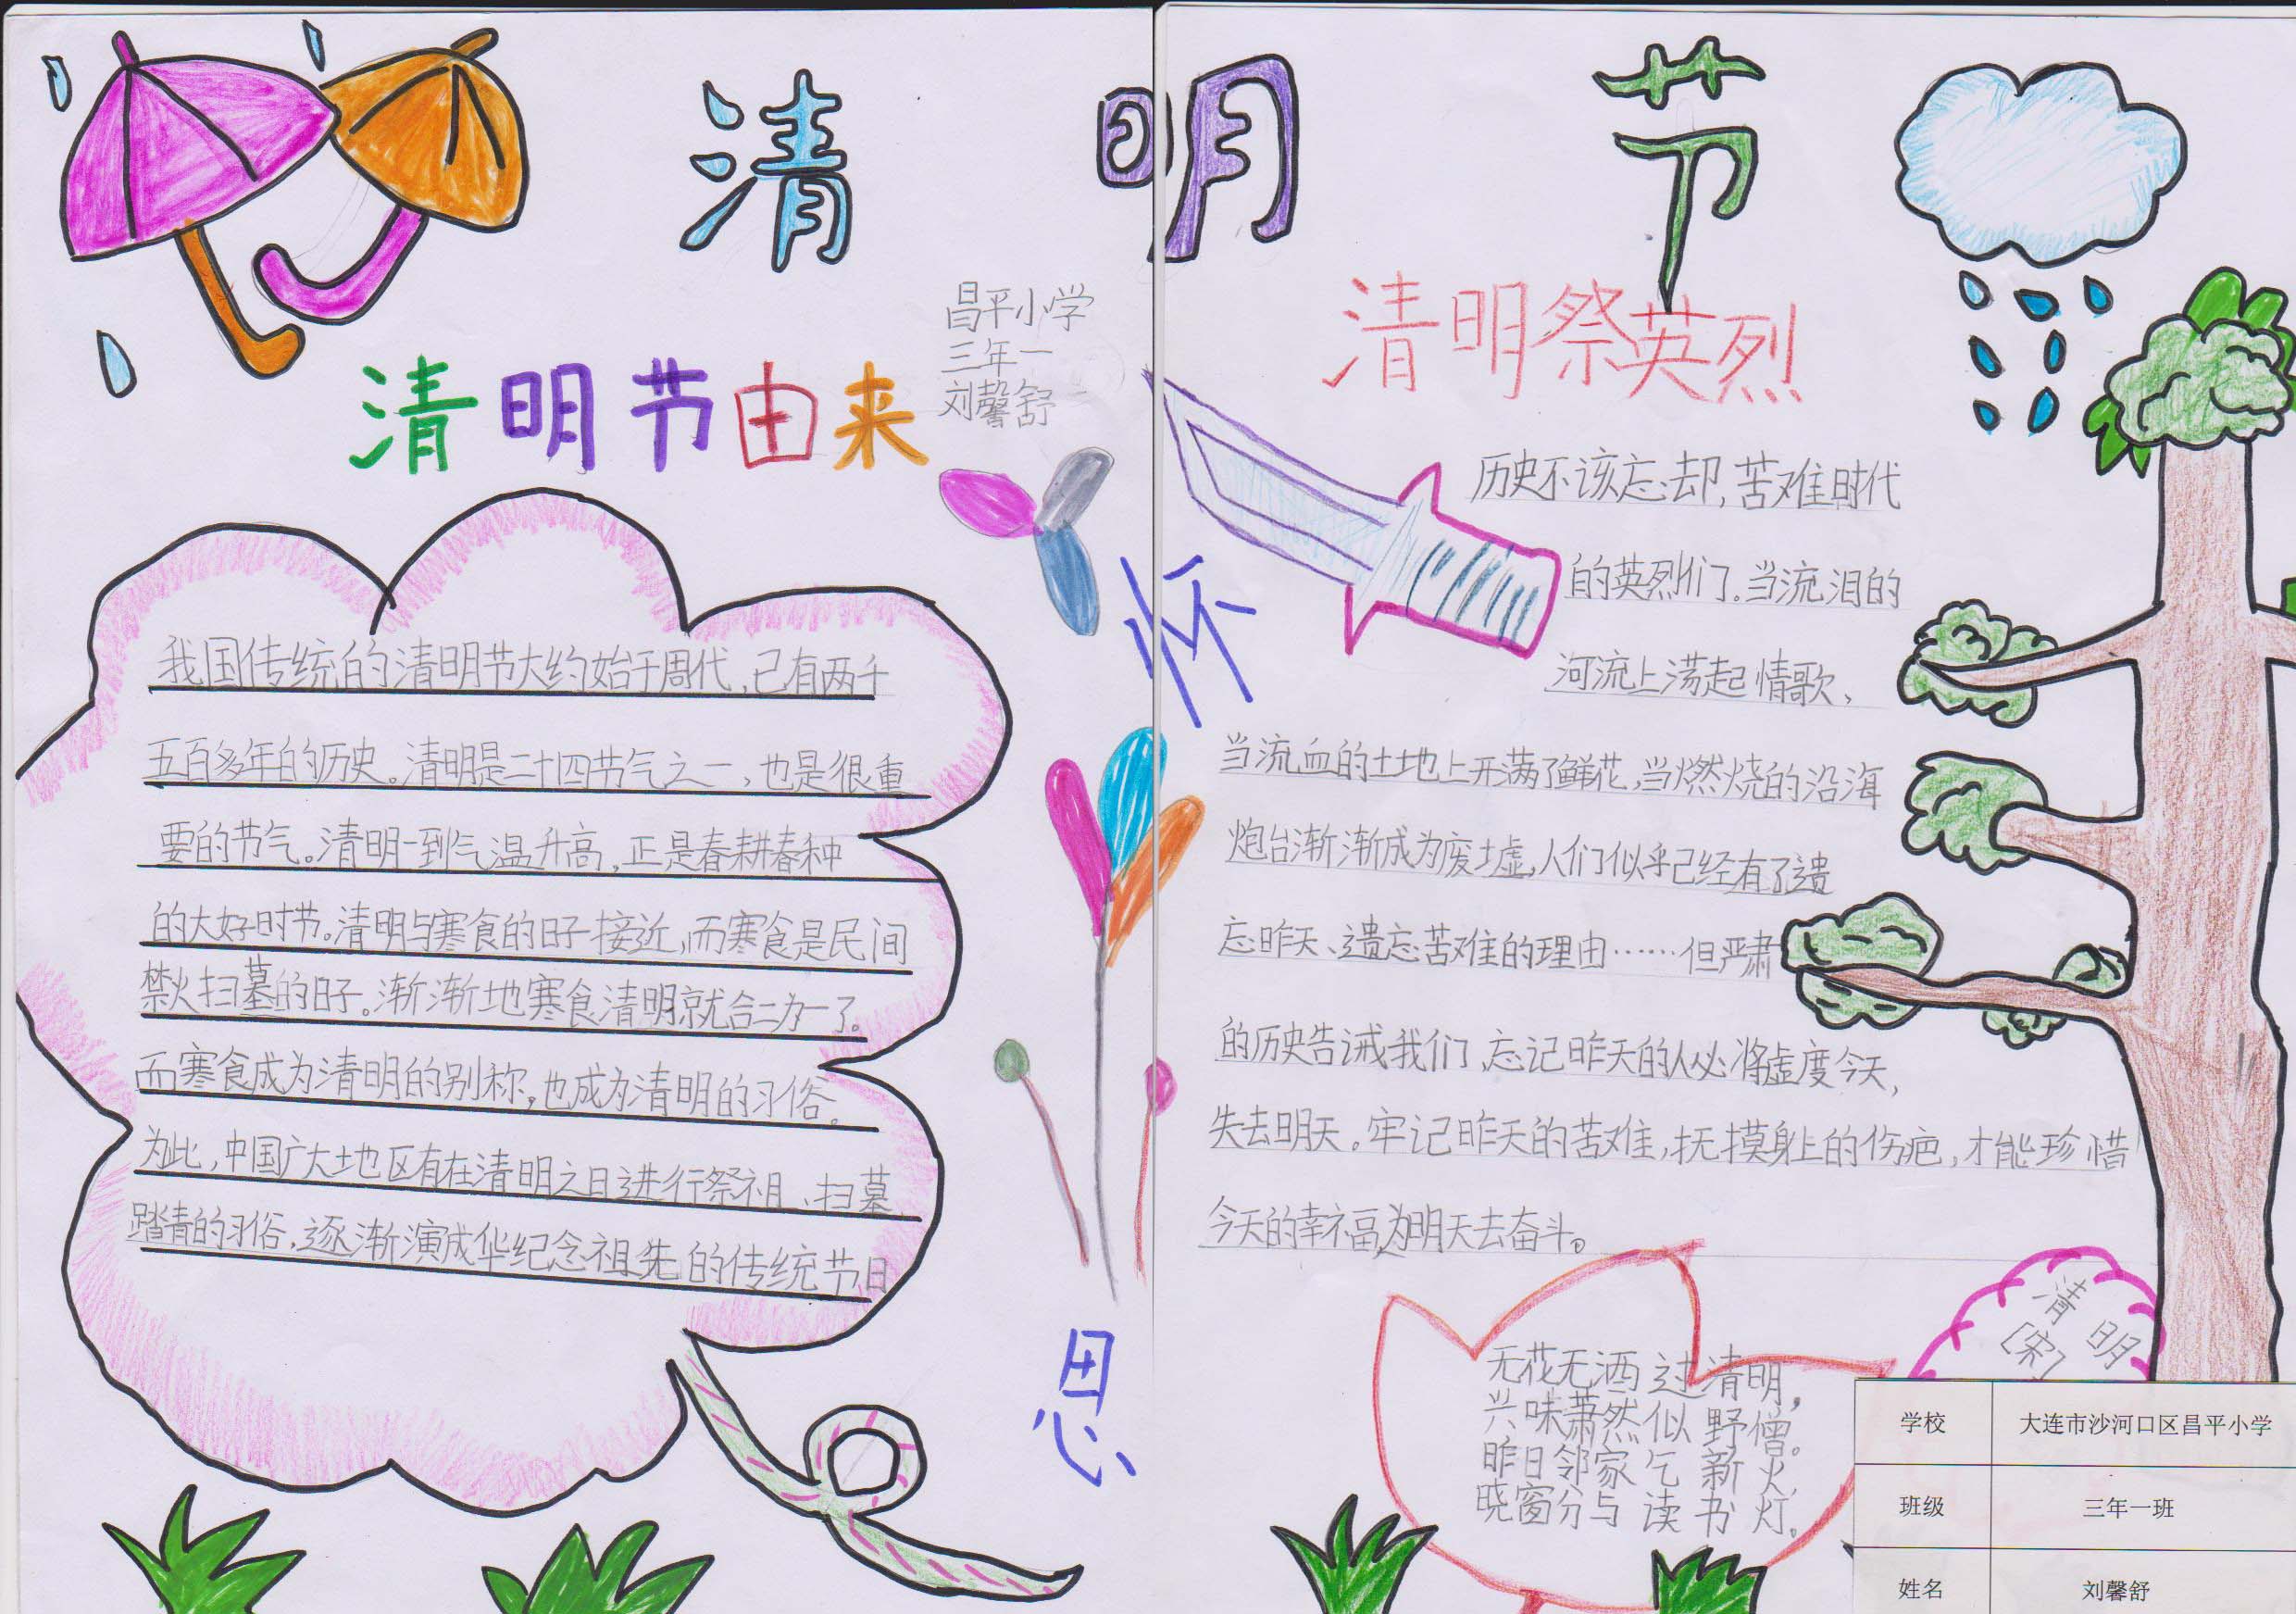 清明节
昌平小学
三年一
刘馨舒
清明节由来
我国传统的清明节大约始于周代,已有两千
五百多年的历史。清明是二十四节气之一,也是很重
要的节气。清明一到气温升高,正是春耕春种
的大好时节。清明与寒食的日子接近,而寒食是民间
禁火扫墓的日子。渐渐地寒食清明就合二为一了。
而寒食成为清明的别称,也成为清明的习俗。
为此,中国广大地区有在清明之日进行祭祖、扫墓、
踏青的习俗,逐渐演成华纪念祖先的传统节日
怀
思
清明祭英烈
历史不该忘却,苦难时代
的英烈们。当流泪的
河流上荡起情歌、
当流血的土地上开满了鲜花,当燃烧的沿海
炮台渐渐成为废墟,人们似乎已经有了遗
忘昨天、遗忘苦难的理由……但严肃
的历史告诫我们,忘记昨天的人必将虚度今天,
失去明天。牢记昨天的苦难,抚摸身上的伤疤,才能珍惜
今天的幸福,为明天去奋斗。
清明
[宋]
无花无酒过清明,
兴味萧然似野僧。
昨日邻家乞新火,
晓窗分与读书灯。
学校 大连市沙河口区昌平小学
班级 三年一班
姓名 刘馨舒